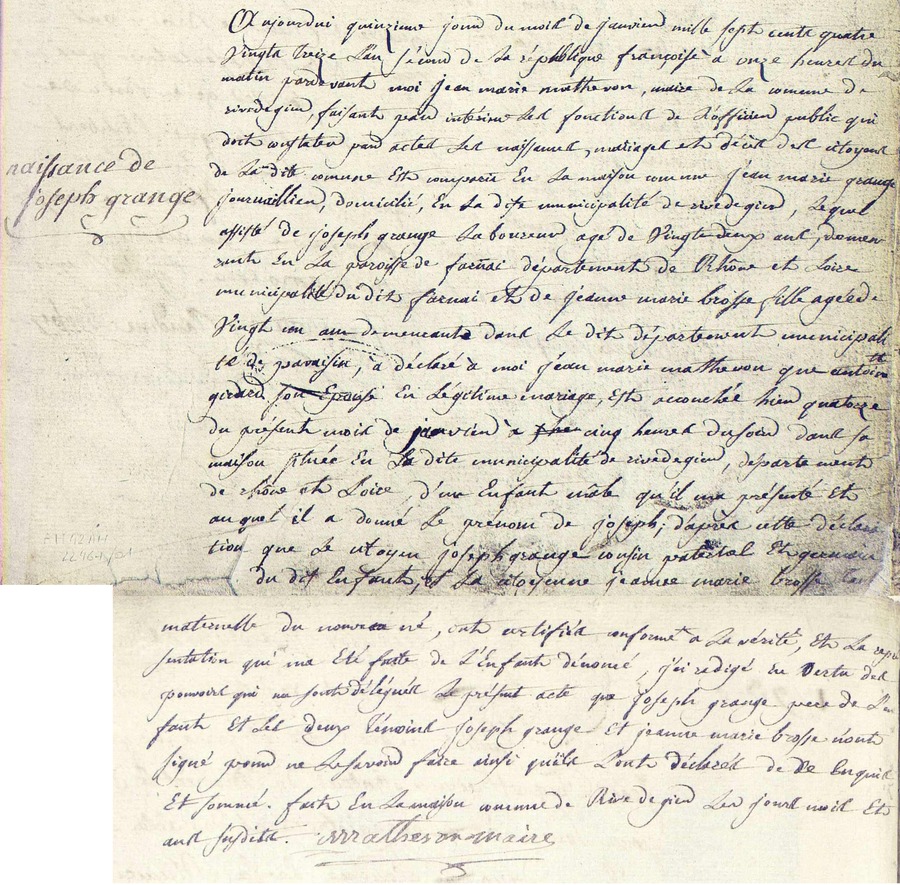 naissance de
joseph grange
Aujourdui quinzieme jour du mois de janvier mille sept cents quatre
Vingt treize L'an second de La république françoise à onze heures du
matin pardevant moi jean marie mathevon, maire de La comune de
rivedegier, faisant pour intérim Les fonctions de L'officier public qui
doit constater par actes Les naissances, mariages et décès des citoyens
de La dite comune Est comparu En La maison comune jean marie grange
journaillier, domicilié, En La dite municipalité de rivedegier, Lequel
assisté de joseph grange Laboureur agé de Vingt deux ans, demeu
rant En La paroisse de farnai département de Rhône et Loire
municipalité du dit farnai et de jeanne marie brosse fille agée de
Vingt un ans demeurante dans Le dit département municipali
té de pavaisin, a déclaré à moi jean marie mathevon que antoinette
girard son Epouse En Légitime mariage, Est accouchée hier quatorze
du présent mois de janvier à cinq heures du soir dans sa
maison située En La dite municipalité de rivedegier, département
de rhône et Loire, d'un Enfant mâle qu'il ma présenté Et
auquel il a donné Le prénom de joseph; d'après cette déclara
tion que Le citoyen joseph grange cousin paternel Et germain
du dit Enfant, et La citoyenne jeanne marie brosse
maternelle du nouveau né, ont certifiés conforme à La vérité, Et La repré
sentation qui ma Eté faite de L'Enfant dénomé, j'ai rédigé En Vertu des
pouvoirs qui me sont délégués Le présent acte que joseph grange pere de L'en
fant Et Les deux témoins joseph grange Et jeanne marie brosse nont
signé pour ne Le savoir faire ainsi quils L'ont déclarés de ce Enquis
Et sommé. fait En La maison comune de Rive degier Les jour mois Et
ans susdits. Mathevon maire